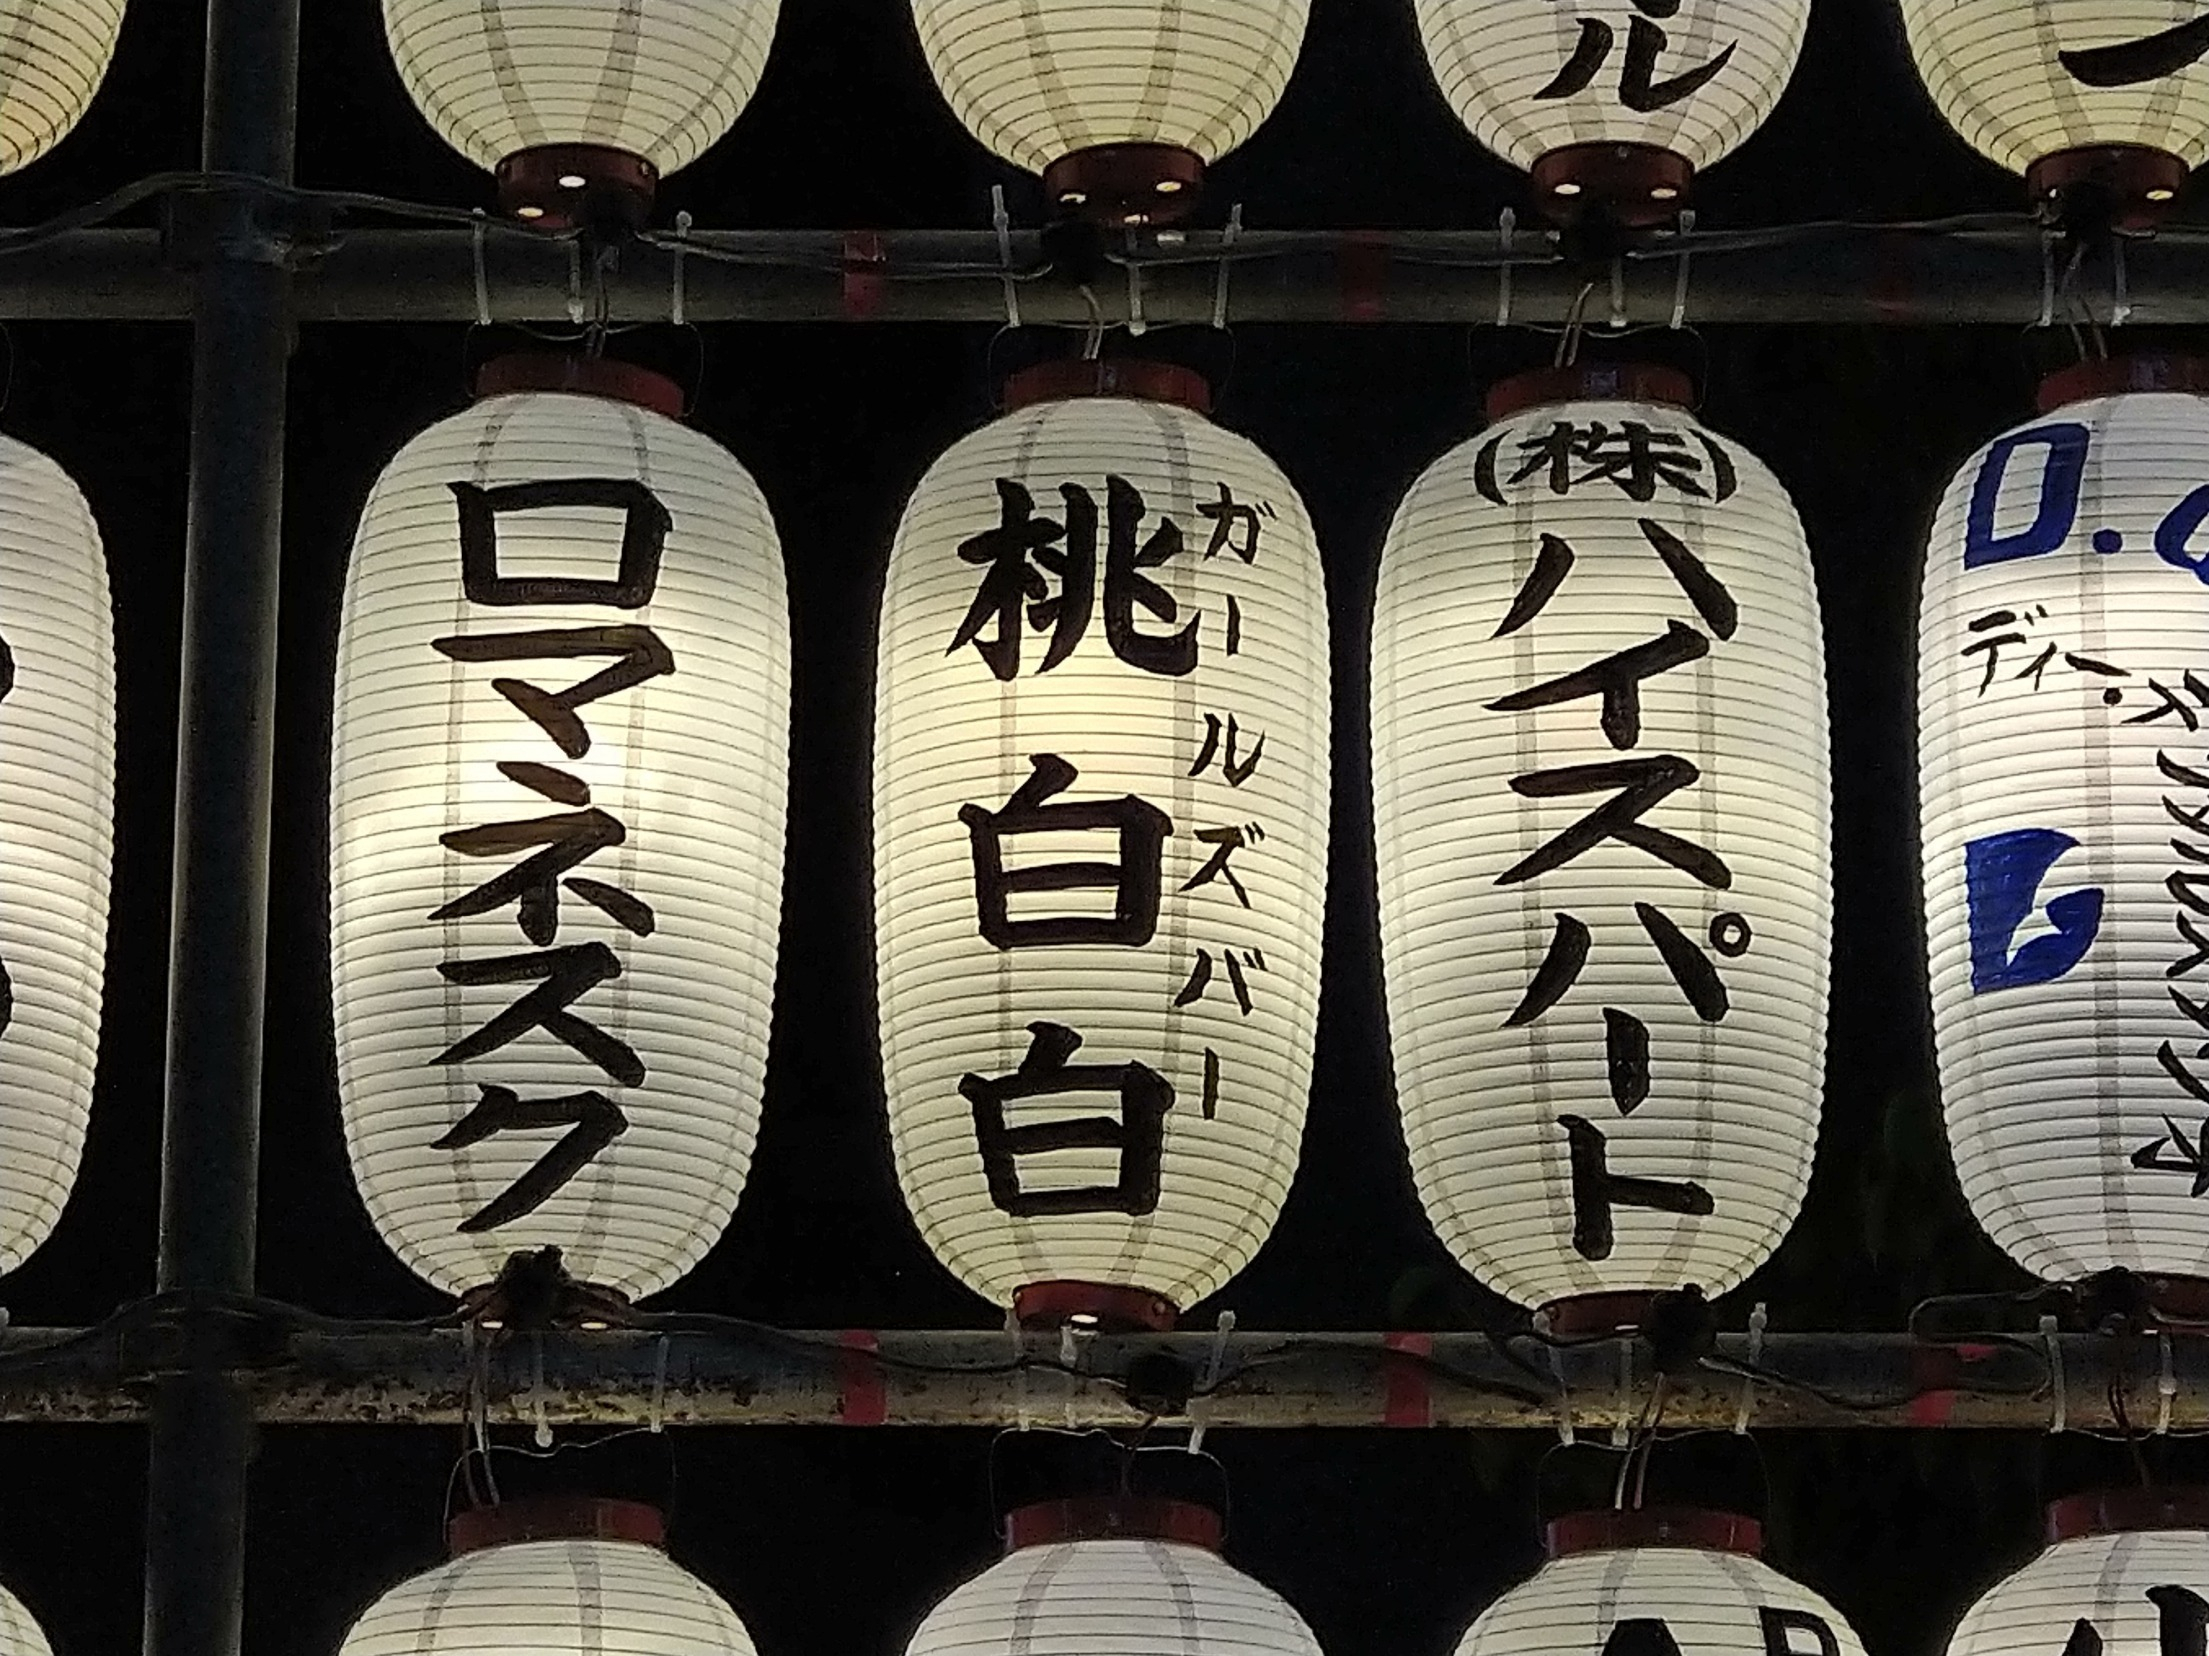 ル
ロマネスク
ガールズバー
桃白白
(株)
ハイスパート
D.
ディー.